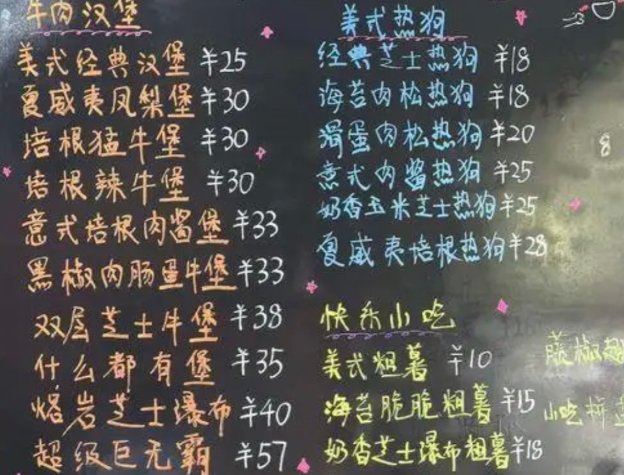 牛肉汉堡
美式经典汉堡 ¥25
夏威夷凤梨堡 ¥30
培根猛牛堡 ¥30
培根辣牛堡 ¥30
意式培根肉酱堡 ¥33
黑椒肉肠蛋牛堡 ¥33
双层芝士牛堡 ¥38
什么都有堡 ¥35
熔岩芝士瀑布 ¥40
超级巨无霸 ¥57
美式热狗
经典芝士热狗 ¥18
海苔肉松热狗 ¥18
滑蛋肉松热狗 ¥20
意式肉酱热狗 ¥25
奶香玉米芝士热狗 ¥25
夏威夷培根热狗 ¥28
快乐小吃
美式粗薯 ¥10
海苔脆脆粗薯 ¥15
奶香芝士瀑布粗薯 ¥18
8
藤椒翅
小吃拼